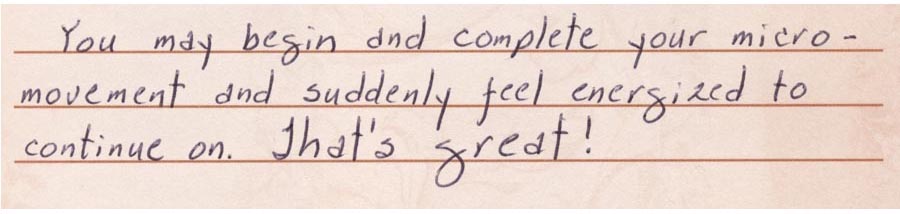 You may begin and complete your micro-
movement and suddenly feel energized to
continue on. That's great!